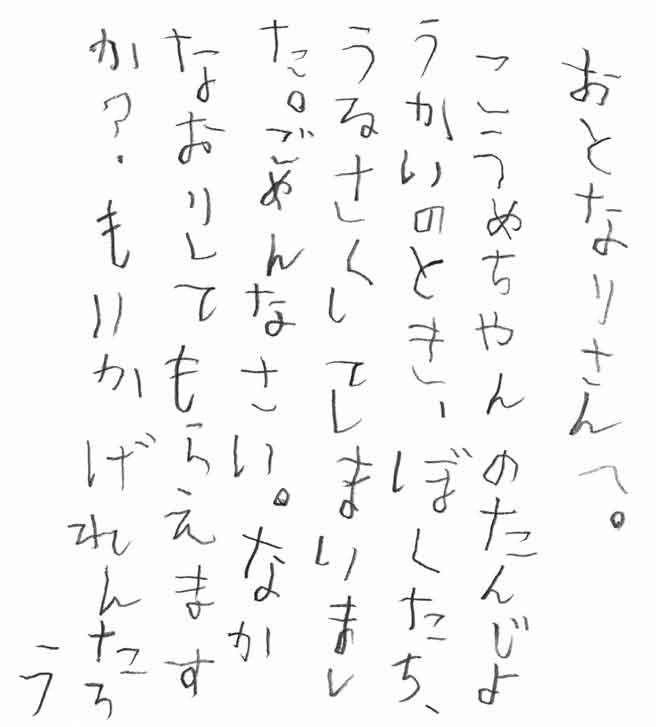 おとなりさんへ。
こうめちゃんのたんじょ
うかいのとき、ぼくたち、
うるさくしてしまいまし
た。ごめんなさい。なか
なおりしてもらえます
か?もりかげれんたろ
う